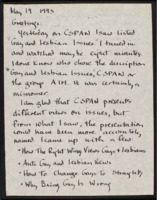 May 19 1993
Greetings,
Yesterday on CSPAN I saw listed
Gay and Lesbian Issues. I tuned in
and watched maybe eight minutes.
I don't know who chose the description
"Gay and Lesbian Issues, CSPAN or
the group AIM. It was certainly
a misnomer.
I am glad that CSPAN presents
different views on issues, but
from what I saw, the presentation
could have been more accurately
named. I came up with a few:
• How The Right Wing Views Gays + Lesbians
• Anti Gay and Lesbian Views
• How To Change Gays To Straights
• Why Being Gay Is Wrong